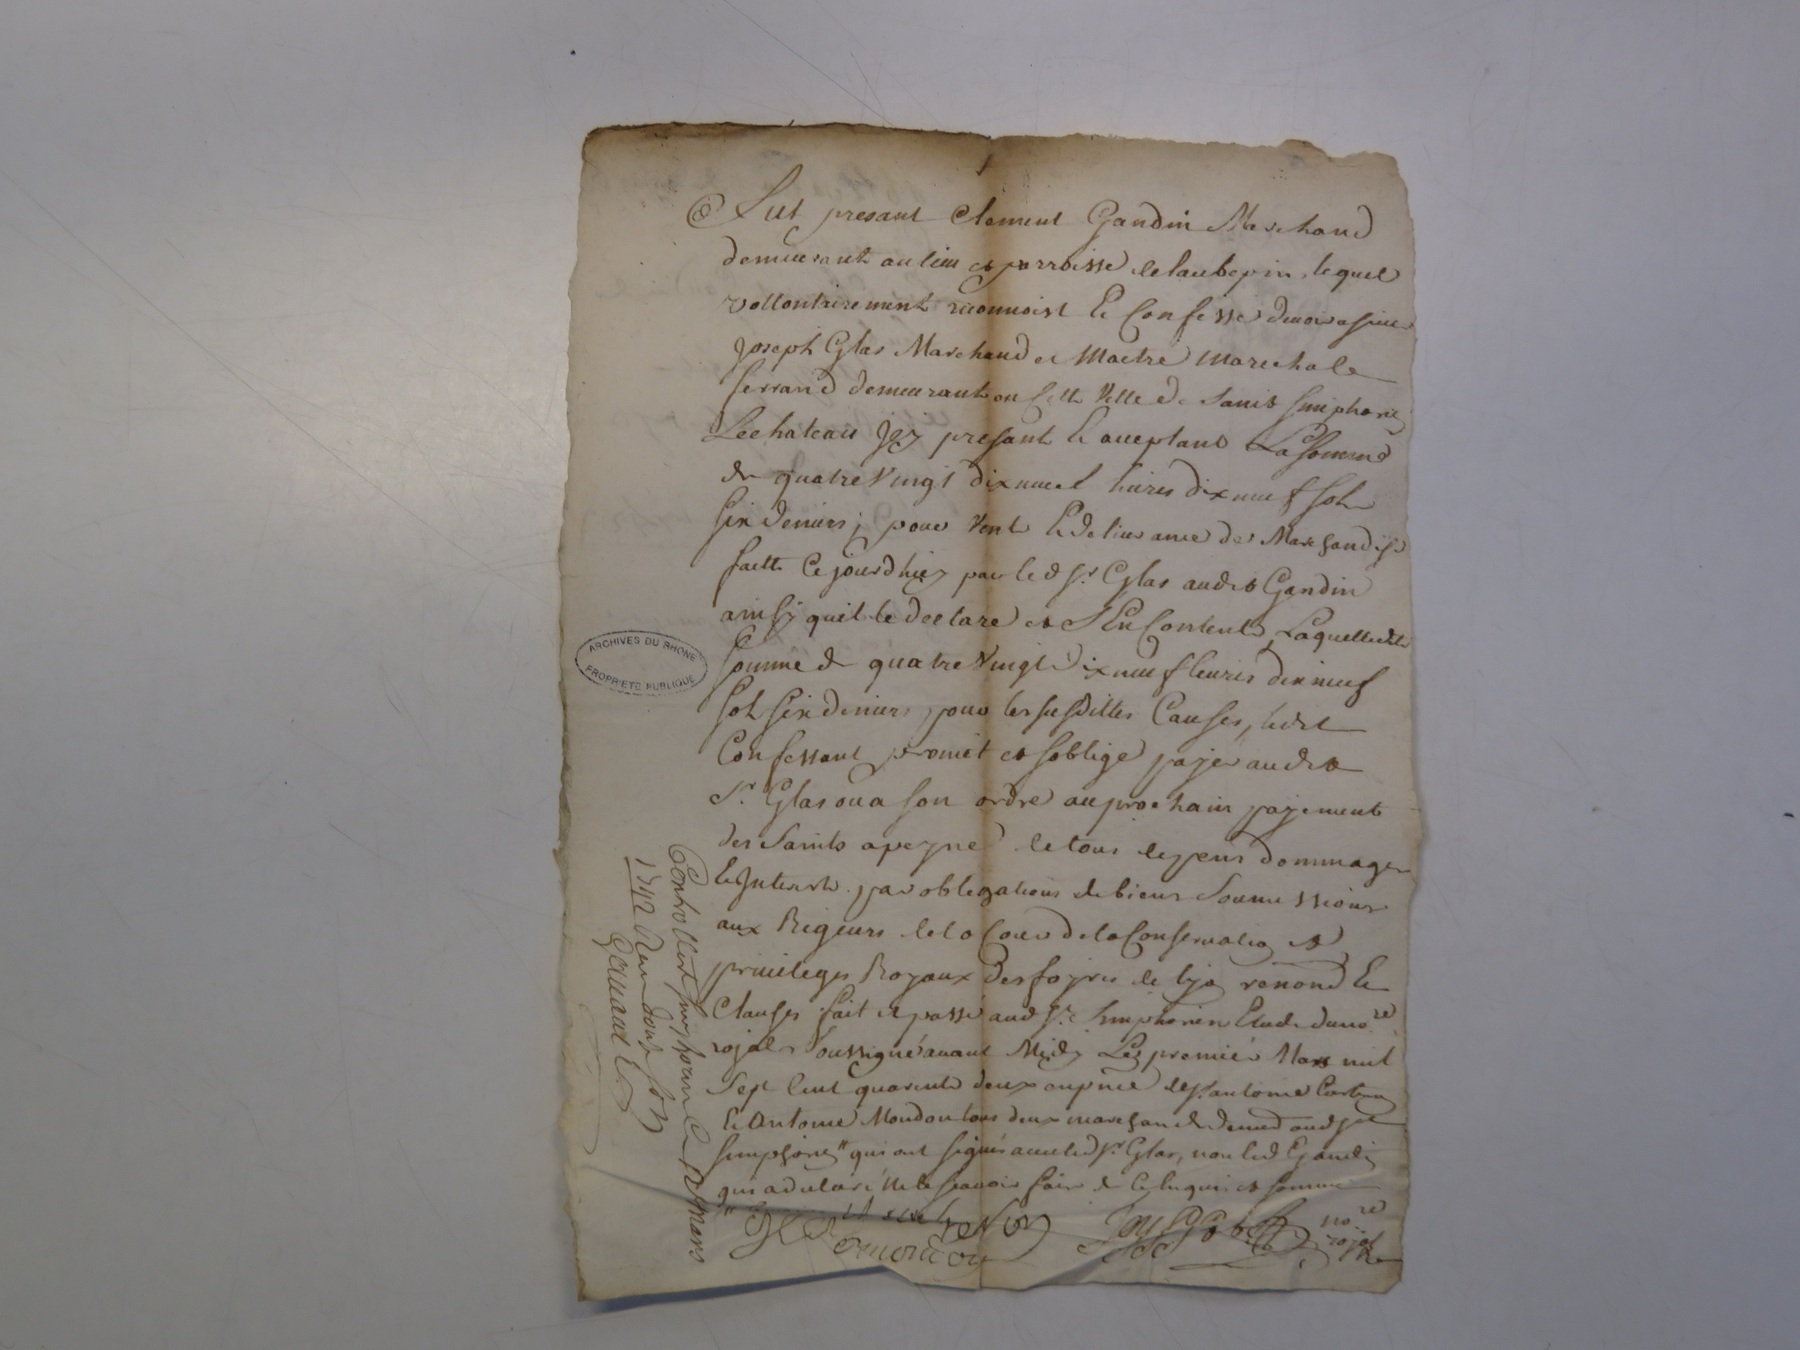 Fut presant Clement Gandin Marchand
demeurant au lieu et parroisse de laubepin, lequel
vollontairement reconnoist & Confesse devoir a sieur
Joseph Glas Marchand et Maitre Marechale
ferrand demeurant en cette Ville de Saint Simphorien
Lechateau Jcy presant & aceptant La somme
de quatre Vingt dix neuf livres dix neuf sols
six deniers ; pour Vente & delivrance de Marchandise
faitte Cejourdhuy par led Sr. Glas audit Gandin
ainsy quil le declare et s'En Contente, Laquelle ditte
somme de quatre Vingt dix neuf livres dix neuf
sols six deniers, pour les susdittes Causes, ledit
Confessant promet et soblige payer audit
Sr. Glas ou a son ordre au prochain payement
des Saints a peyne de tous depens dommages
& Interests. par obligations de biens Soumissions
aux Rigeurs de la Cour de la Conservation et
privileges Royaux des foyres de lyon renond &
Clauses fait et passé aud St. Simphorien Etude du no.re
royal soussigné avant Midy Le premier Mars mil
sept Cent quarente deux en presence de Sr. antoine
& Antoine Moudon tous deux marchands demt aud St
Simphorien qui ont signés avec led Sr. Glas, non led Gandin
qui a declaré ne le scavoir faire de ce enquis et sommé
Glas
no.re royal
Controllé a St Simphorien le 12 mars
1742 Reçu douze sols
ARCHIVES DU RHONE
PROPRIETE PUBLIQUE